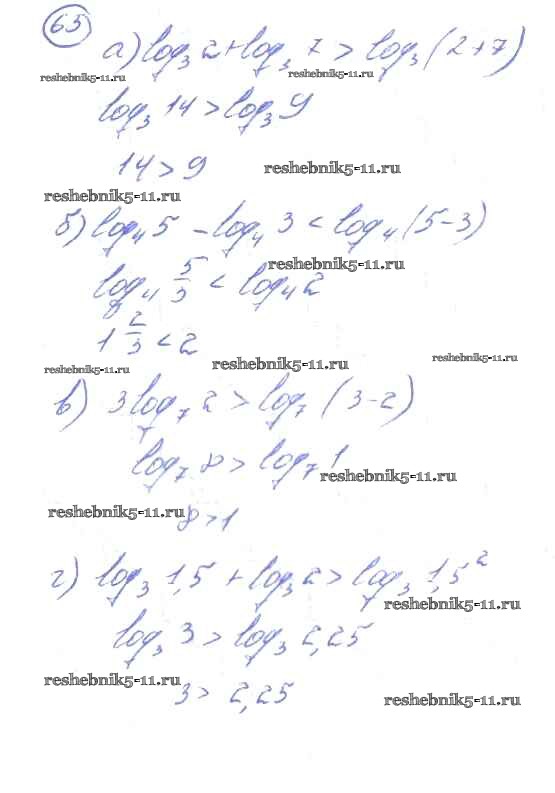 65
а) log₃ 2 + log₃ 7 > log₃ (2+7)
reshebnik5-11.ru reshebnik5-11.ru
log₃ 14 > log₃ 9
14 > 9 reshebnik5-11.ru
reshebnik5-11.ru
б) log₄ 5 - log₄ 3 < log₄ (5-3)
reshebnik5-11.ru
log₄ 5/3 < log₄ 2
1 2/3 < 2
reshebnik5-11.ru reshebnik5-11.ru reshebnik5-11.ru
в) 3 log₇ 2 > log₇ (3-2)
log₇ 8 > log₇ 1
reshebnik5-11.ru
reshebnik5-11.ru 8 > 1
г) log₃ 1,5 + log₃ 2 > log₃ 1,5²
reshebnik5-11.ru
log₃ 3 > log₃ 2,25
reshebnik5-11.ru 3 > 2,25 reshebnik5-11.ru